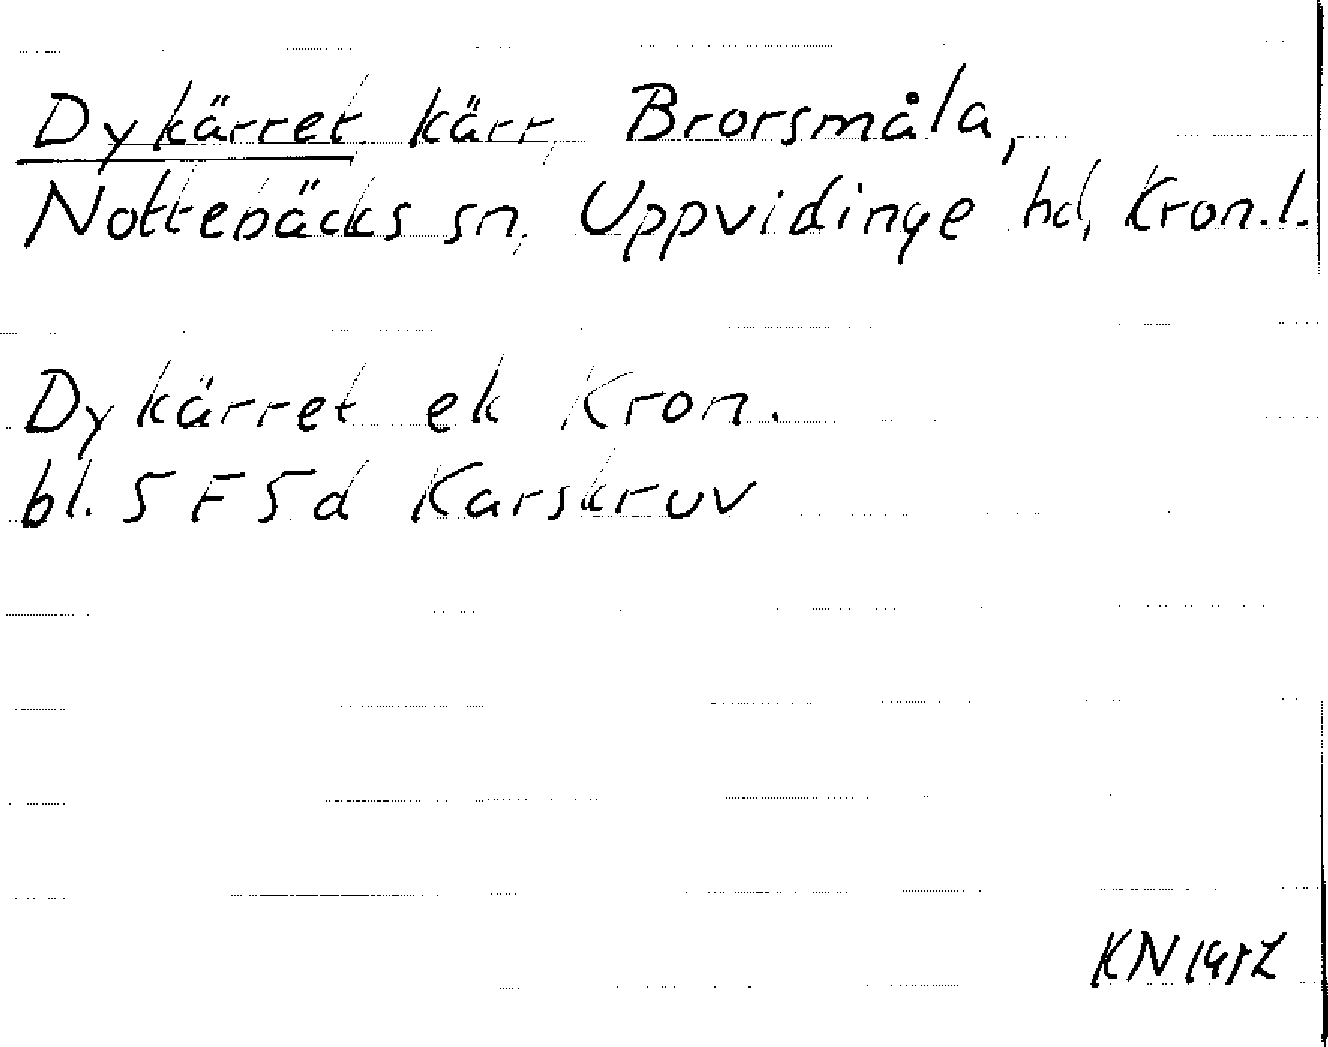 Dykärret kärr, Brorsmåla,
Nottebäcks sn, Uppvidinge hd, Kron.l.
Dykärret ek Kron.
bl. 5 F 5 d Karskruv
KN